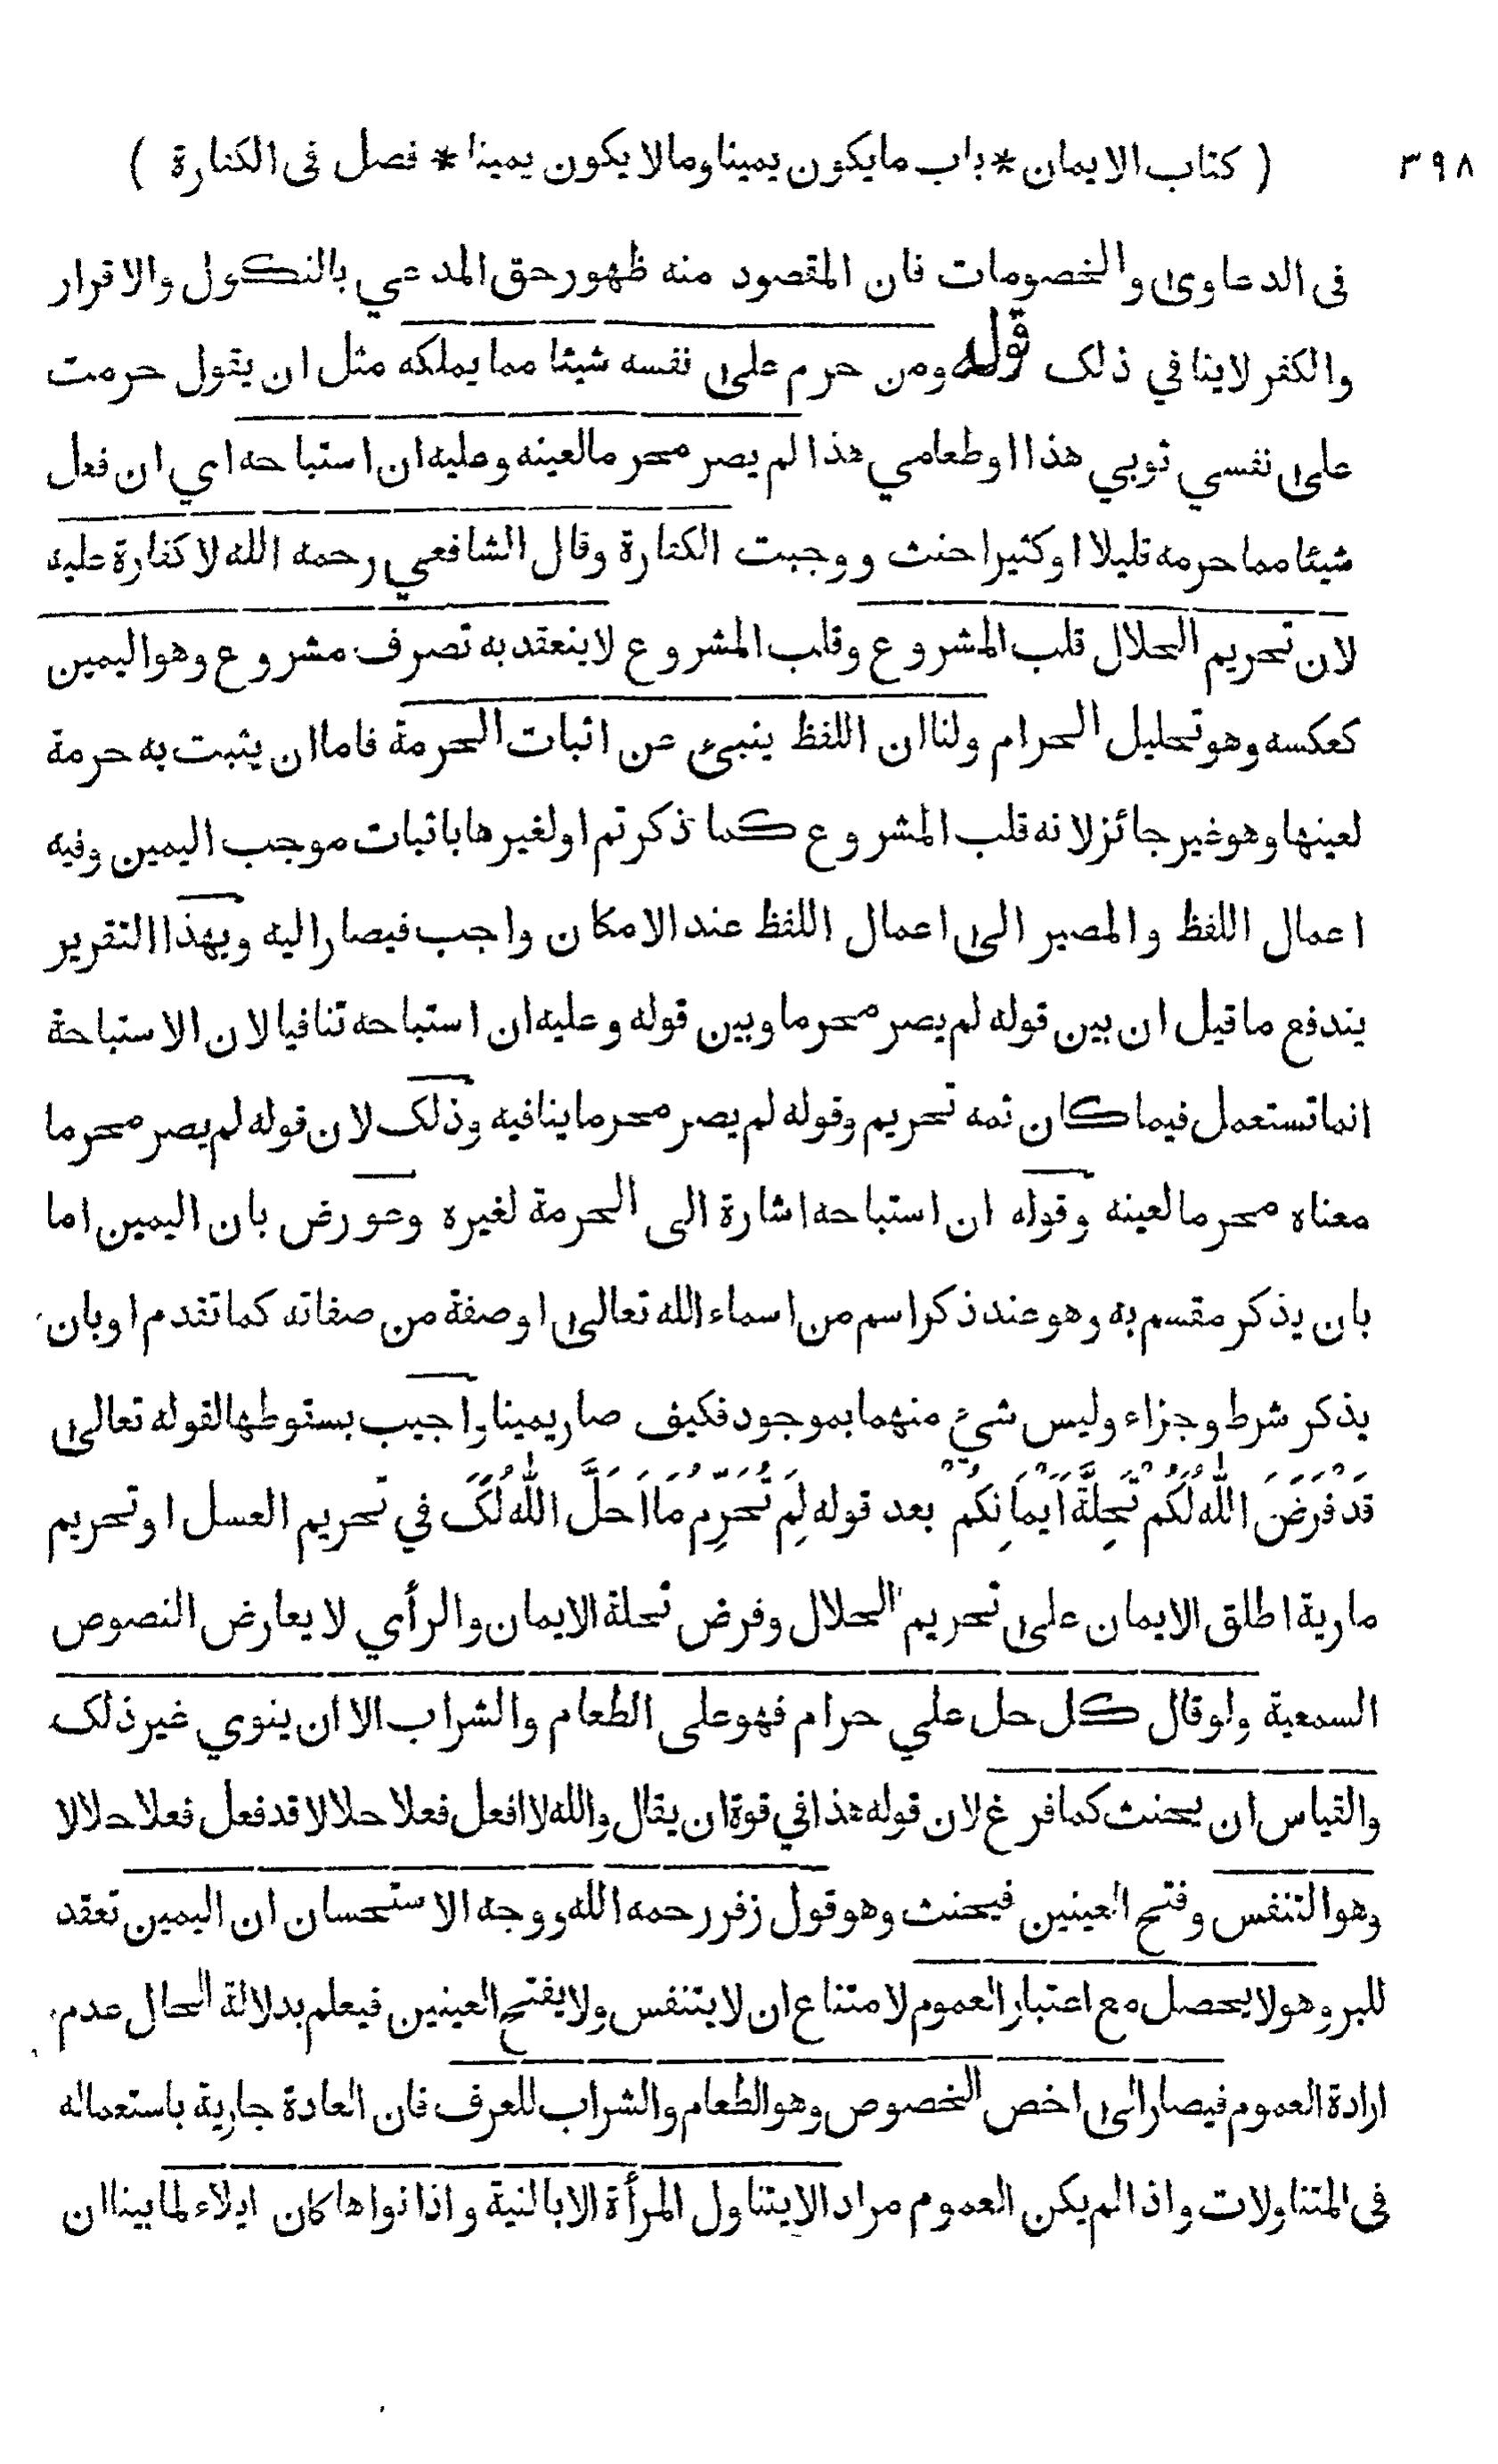 ٣٩٨ ( كتاب الايمان * باب ما يكون يمينا وما لا يكون يمينا * فصل فى الكفارة )
فى الدعاوى والخصومات فان المقصود منه ظهور حق المدعي بالنكول والاقرار
والكفر لاينافي ذلك قوله ومن حرم على نفسه شيئا مما يملكه مثل ان يقول حرمت
على نفسي ثوبي هذا اوطعامي هذا لم يصر محرما لعينه وعليه ان استباحه اي ان فعل
شيئا مما حرمه قليلا اوكثيرا حنث ووجبت الكفارة وقال الشافعي رحمه الله لا كفارة عليه
لان تحريم الحلال قلب المشروع وقلب المشروع لاينعقد به تصرف مشروع وهو اليمين
كعكسه وهو تحليل الحرام ولنا ان اللفظ ينبئ عن اثبات الحرمة فاما ان يثبت به حرمة
لعينها وهو غير جائز لانه قلب المشروع كما ذكر تم او لغيرها باثبات موجب اليمين وفيه
اعمال اللفظ والمصير الى اعمال اللفظ عند الامكان واجب فيصار اليه وبهذا التقرير
يندفع ما قيل ان بين قوله لم يصر محرما وبين قوله وعليه ان استباحه تنافيا لان الاستباحة
انما تستعمل فيما كان ثمه تحريم وقوله لم يصر محرما ينافيه وذلك لان قوله لم يصر محرما
معناه محرما لعينه وقوله ان استباحه اشارة الى الحرمة لغيره وعورض بان اليمين اما
بان يذكر مقسم به وهو عند ذكر اسم من اسماء الله تعالى او صفة من صفاته كما تقدم او بان
يذكر شرط وجزاء وليس شئ منهما بموجود فكيف صار يمينا واجيب بسقوطها لقوله تعالى
قَدْ فَرَضَ اللهُ لَكُمْ تَحِلَّةَ اَيْمَانِكُمْ بعد قوله لِمَ تُحَرِّمُ مَا اَحَلَّ اللهُ لَكَ في تحريم العسل او تحريم
مارية اطلق الايمان على تحريم الحلال وفرض تحلة الايمان والرأي لا يعارض النصوص
السمعية ولو قال كل حل علي حرام فهو على الطعام والشراب الا ان ينوي غير ذلك
والقياس ان يحنث كما فرغ لان قوله هذا في قوة ان يقال والله لا افعل فعلا حلالا قد فعل فعلا حلالا
وهو التنفس وفتح العينين فيحنث وهو قول زفر رحمه الله ووجه الاستحسان ان اليمين تعقد
للبر وهو لا يحصل مع اعتبار العموم لامتناع ان لا يتنفس ولا يفتح العينين فيعلم بدلالة الحال عدم
ارادة العموم فيصار الى اخص الخصوص وهو الطعام والشراب للعرف فان العادة جارية باستعماله
فى المتناولات واذا لم يكن العموم مرادا لايتناول المرأة الا بالنية واذا نواها كان ايلاء لما بينا ان